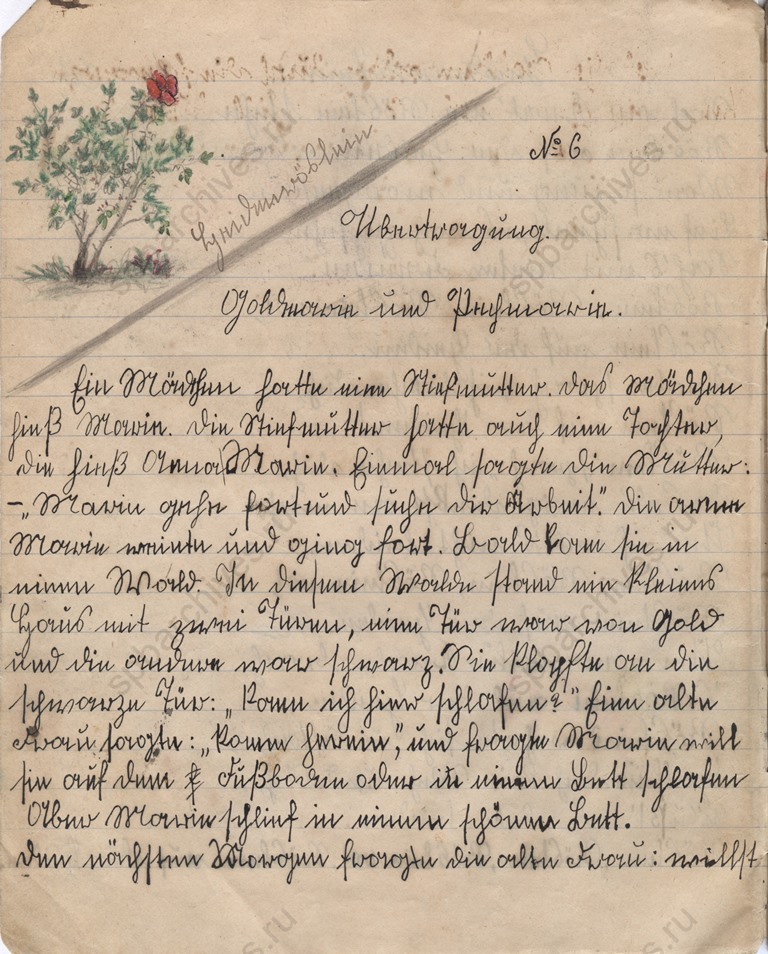 Heidenröslein
№ 6
Übertragung.
Goldmarie und Pechmarie.
Ein Mädchen hatte eine Stiefmutter. Das Mädchen
hieß Marie. Die Stiefmutter hatte auch eine Tochter,
die hieß Anna Marie. Einmal sagte die Mutter:
– „Marie gehe fort und suche dir Arbeit." Die arme
Marie weinte und ging fort. Bald kam sie in
einen Wald. In diesem Walde stand ein kleines
Haus mit zwei Türen, eine Tür war von Gold
und die andere war schwarz. Sie klopfte an die
schwarze Tür: „Kann ich hier schlafen?" Eine alte
Frau sagte: „Komm herein", und fragte Marie will
sie auf dem Fußboden oder in einem Bett schlafen
Aber Marie schlief in einem schönen Bett.
Den nächsten Morgen fragte die alte Frau: willst